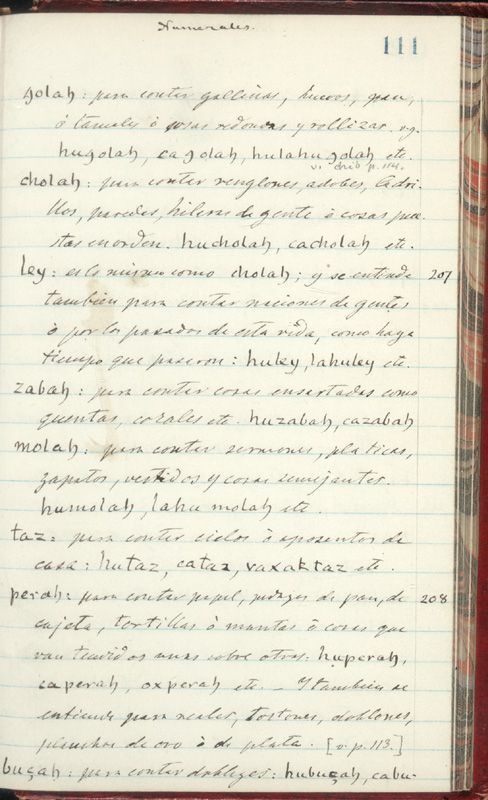 Numerales.
111
golah: para contar gallinas, huevos, pan,
ò tamales ò cosas redondas y rollizas. v.g.
hugolah, cagolah, hulahugolah etc.
cholah: para contar renglones, adobes, ladri-
llos, paredes, hileras de gente ò cosas pue-
stas en orden. hucholah, cacholah etc.
ley: es lo mismo como cholah; y se entiende 207
tambien para contar naciones de gentes
ò por los pasados de esta vida, como haya
tiempo que pasaron: huley, lahuley etc.
zabah: para contar cosas ensartadas como
quentas, corales etc. huzabah, cazabah
molah: para contar sermones, platicas,
zapatos, vestidos y cosas semejantes.
humolah, lahu molah etc.
taz: para contar cielos ò aposentos de
casa: hutaz, cataz, vaxaktaz etc.
perah: para contar papel, de pan, de 208
cajeta, tortillas ò mantas ò cosas que
van tendidos unas sobre otras: huperah,
caperah, oxperah etc. – Y tambien se
entiende para reales, tostones, doblones,
planchas de oro ò de plata. [v. p. 113.]
buçah: para contar doblezes: hubuçah, cabu-